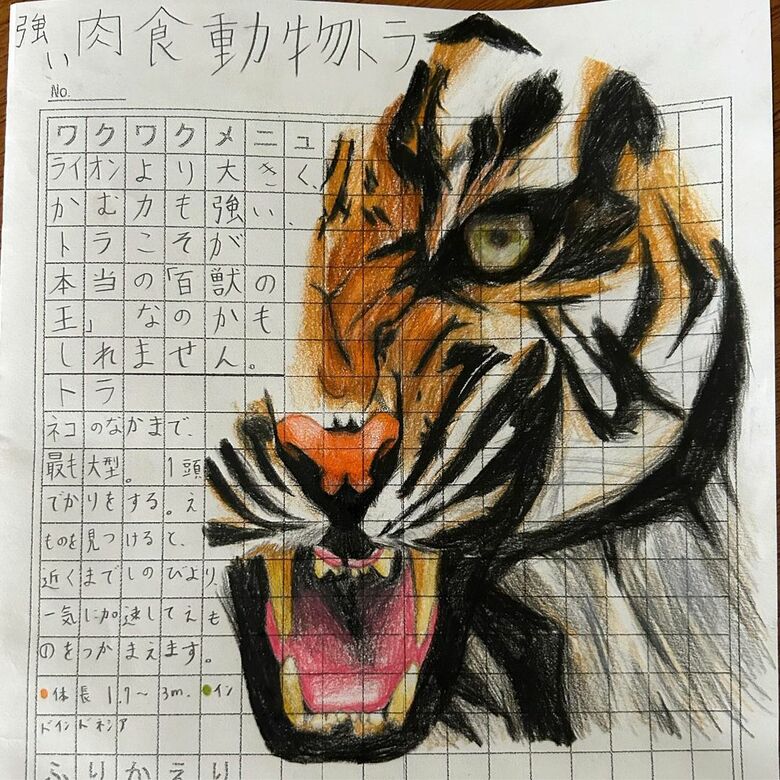 強い肉食動物トラ
No.
ワクワクメニュ
ライオンより大きく、
かむ力も強い、
トラこそが
本当の「百獣の
王」なのかも
しれません。
トラ
ネコのなかまで、
最も大型。1頭
でかりをする。え
ものを見つけると、
近くまでしのびより、
一気に加速してえも
のをつかまえます。
●体長1.7~3m.●イン
ドインドネシア
ふりかえり